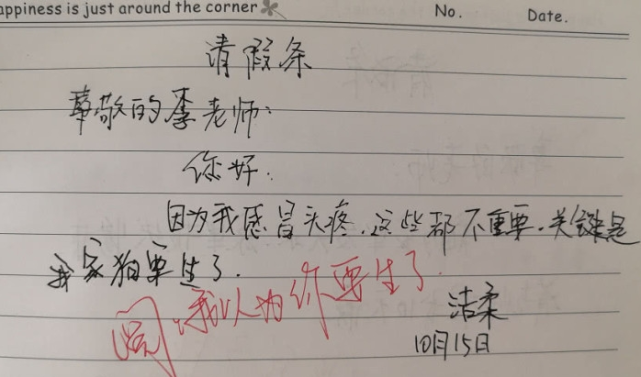 appiness is just around the corner
No. Date.
请假条
尊敬的李老师:
你好:
因为我感冒头疼.这些都不重要.关键是
我家狗要生了.
阅,我以为你要生了
洁柔
10月15日